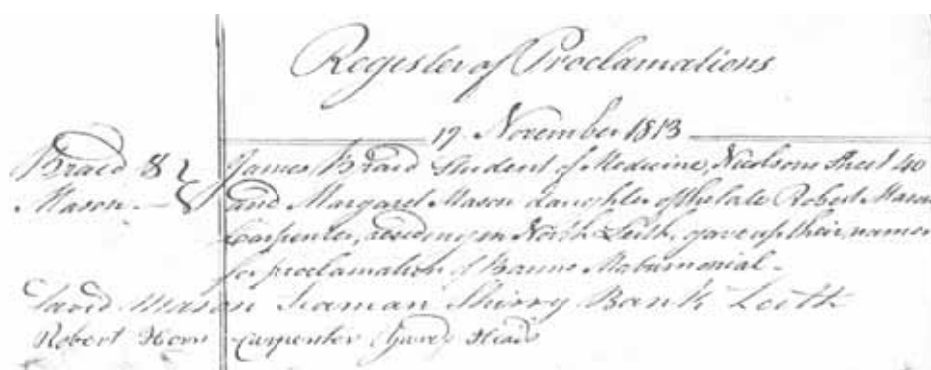 Register of Proclamations
17 November 1813
Braid & James Braid Student of Medicine, Nicolsons Street 40
Mason and Margaret Mason daughter of the late Robert Mason
Carpenter, residing in North Leith, gave up their names
for proclamation of Banns Matrimonial.
David Mason Seaman Shirry Bank Leith
Robert Horn Carpenter